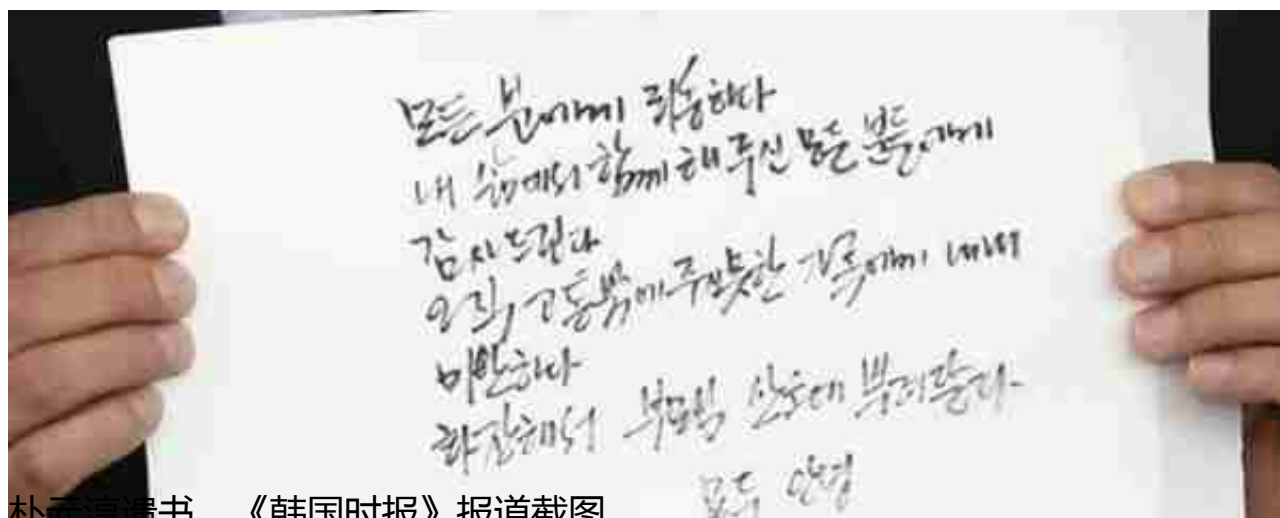 모든 분에게 죄송하다
내 삶에서 함께 해 주신 모든 분들에게
감사드린다
오직, 고통밖에 주지 못한 가족에게 내내
미안하다
화장해서 부모님 산소에 뿌려달라
모두 안녕
朴元淳遗书 《韩国时报》报道截图